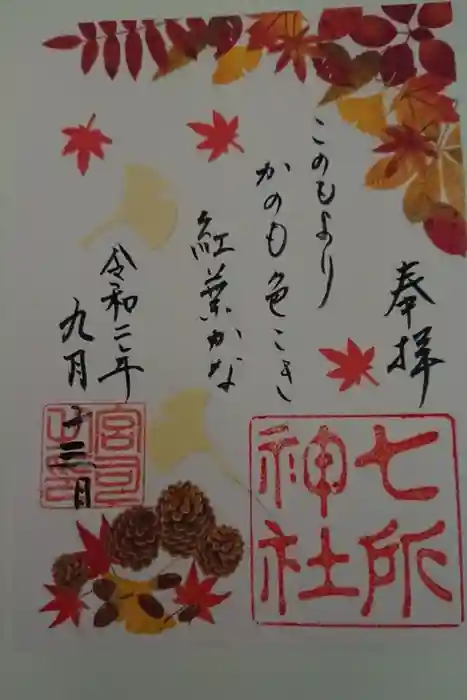 奉拝
七所
神社
このもより
かのも色こき
紅葉かな
令和二年
九月
十三日
宮司
之印